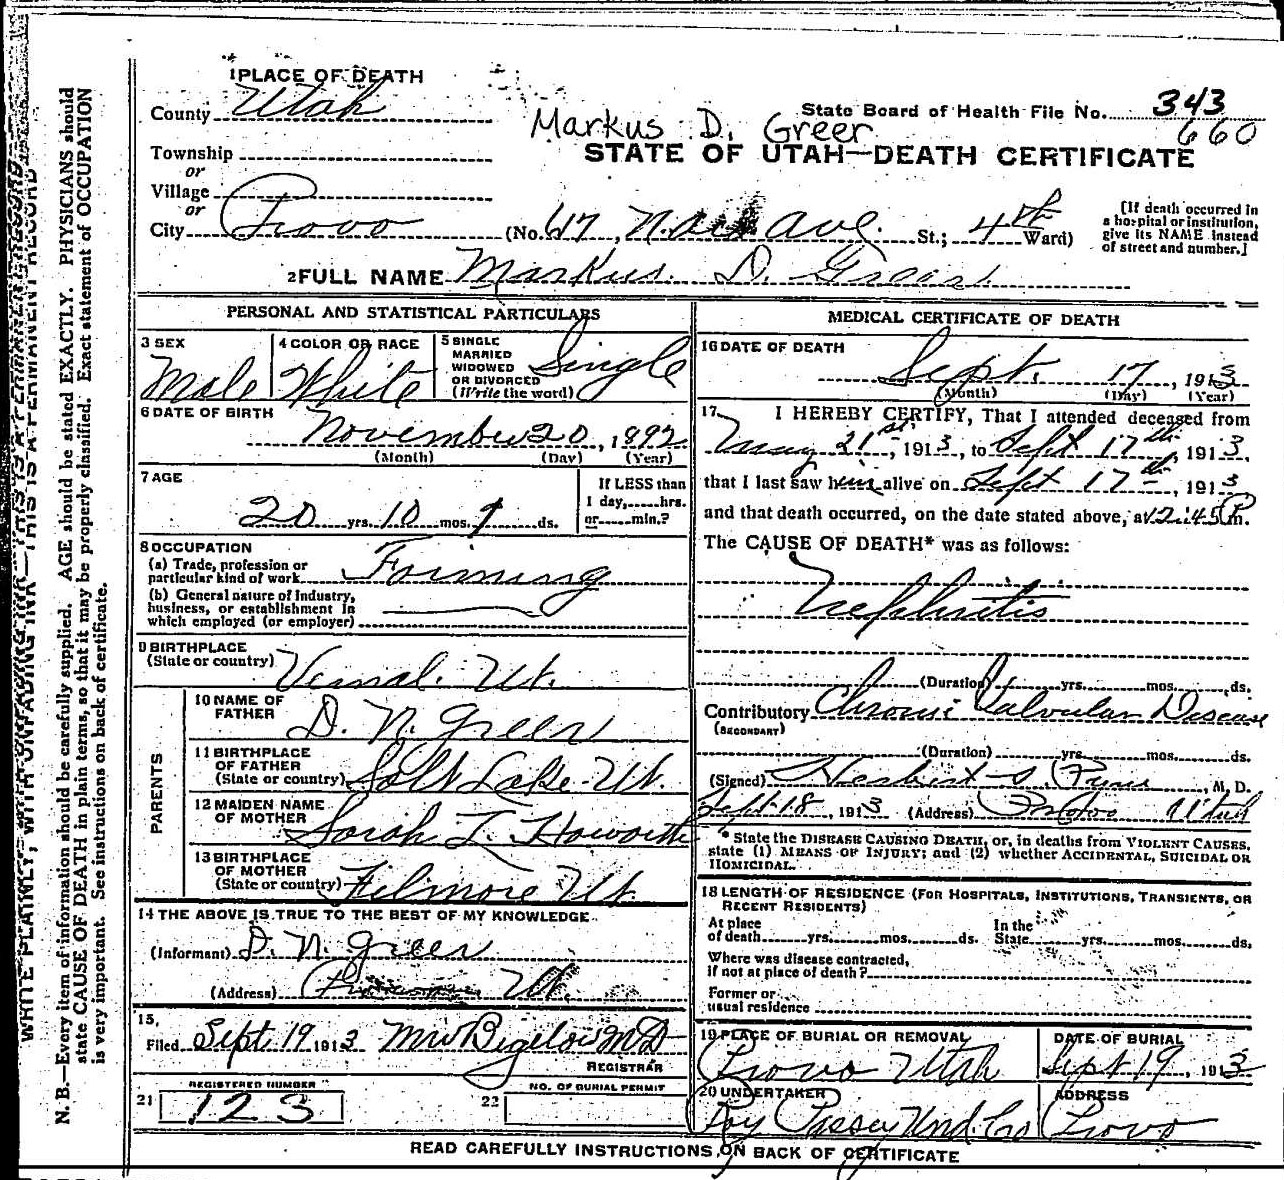 WRITE PLAINLY, WITH UNFADING INK—THIS IS A PERMANENT RECORD
N. B.—Every item of information should be carefully supplied. AGE should be stated EXACTLY. PHYSICIANS should
state CAUSE OF DEATH in plain terms, so that it may be properly classified. Exact statement of OCCUPATION
is very important. See instructions on back of certificate.
1 PLACE OF DEATH
County Utah
State Board of Health File No. 343
660
Markus D. Greer
STATE OF UTAH—DEATH CERTIFICATE
Township
or
Village
or
City Provo (No. 617, Ave. St.; 4th Ward)
[If death occurred in
a hospital or institution,
give its NAME instead
of street and number.]
2 FULL NAME Markus D. Greer
PERSONAL AND STATISTICAL PARTICULARS
3 SEX Male
4 COLOR OR RACE White
5 SINGLE
MARRIED
WIDOWED
OR DIVORCED
(Write the word) Single
6 DATE OF BIRTH
November 20, 1892
(Month) (Day) (Year)
7 AGE
20 yrs. 10 mos. ds.
If LESS than
1 day,......hrs.
or......min.?
8 OCCUPATION
(a) Trade, profession or
particular kind of work Farming
(b) General nature of Industry,
business, or establishment in
which employed (or employer)
9 BIRTHPLACE
(State or country) Vernal. Ut.
PARENTS
10 NAME OF
FATHER D. N. Greer
11 BIRTHPLACE
OF FATHER
(State or country) Salt Lake Ut.
12 MAIDEN NAME
OF MOTHER Sarah L. Haworth
13 BIRTHPLACE
OF MOTHER
(State or country) Filmore Ut.
14 THE ABOVE IS TRUE TO THE BEST OF MY KNOWLEDGE
(Informant) D. N. Greer
(Address) Ut.
15.
Filed Sept 19 1913 MW Bigelow MD
REGISTRAR
REGISTERED NUMBER
21 123
NO. OF BURIAL PERMIT
22
MEDICAL CERTIFICATE OF DEATH
16 DATE OF DEATH
Sept. 17, 1913
(Month) (Day) (Year)
17 I HEREBY CERTIFY, That I attended deceased from
May 21st, 1913, to Sept 17th, 1913.
that I last saw him alive on Sept 17th, 1913
and that death occurred, on the date stated above, at 12:45 P m.
The CAUSE OF DEATH* was as follows:
Nephritis
(Duration) yrs. mos. ds.
Contributory Chronic Valvular Disease
(SECONDARY)
(Duration) yrs. mos. ds.
(Signed) Herbert S. Pyne, M. D.
Sept 18, 1913 (Address) Provo Utah
* State the DISEASE CAUSING DEATH, or, in deaths from VIOLENT CAUSES,
state (1) MEANS OF INJURY; and (2) whether ACCIDENTAL, SUICIDAL OR
HOMICIDAL.
18 LENGTH OF RESIDENCE (FOR HOSPITALS, INSTITUTIONS, TRANSIENTS, OR
RECENT RESIDENTS)
At place
of death yrs. mos. ds.
In the
State yrs. mos. ds.
Where was disease contracted,
if not at place of death?
Former or
usual residence
19 PLACE OF BURIAL OR REMOVAL
Provo Utah
DATE OF BURIAL
Sept 19, 1913
20 UNDERTAKER
Roy Passey Und. Co
ADDRESS
Provo
READ CAREFULLY INSTRUCTIONS ON BACK OF CERTIFICATE